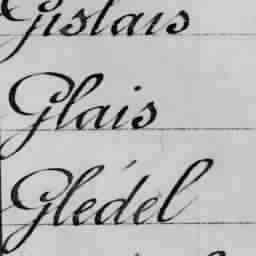 Gislais
Glais
Glédel